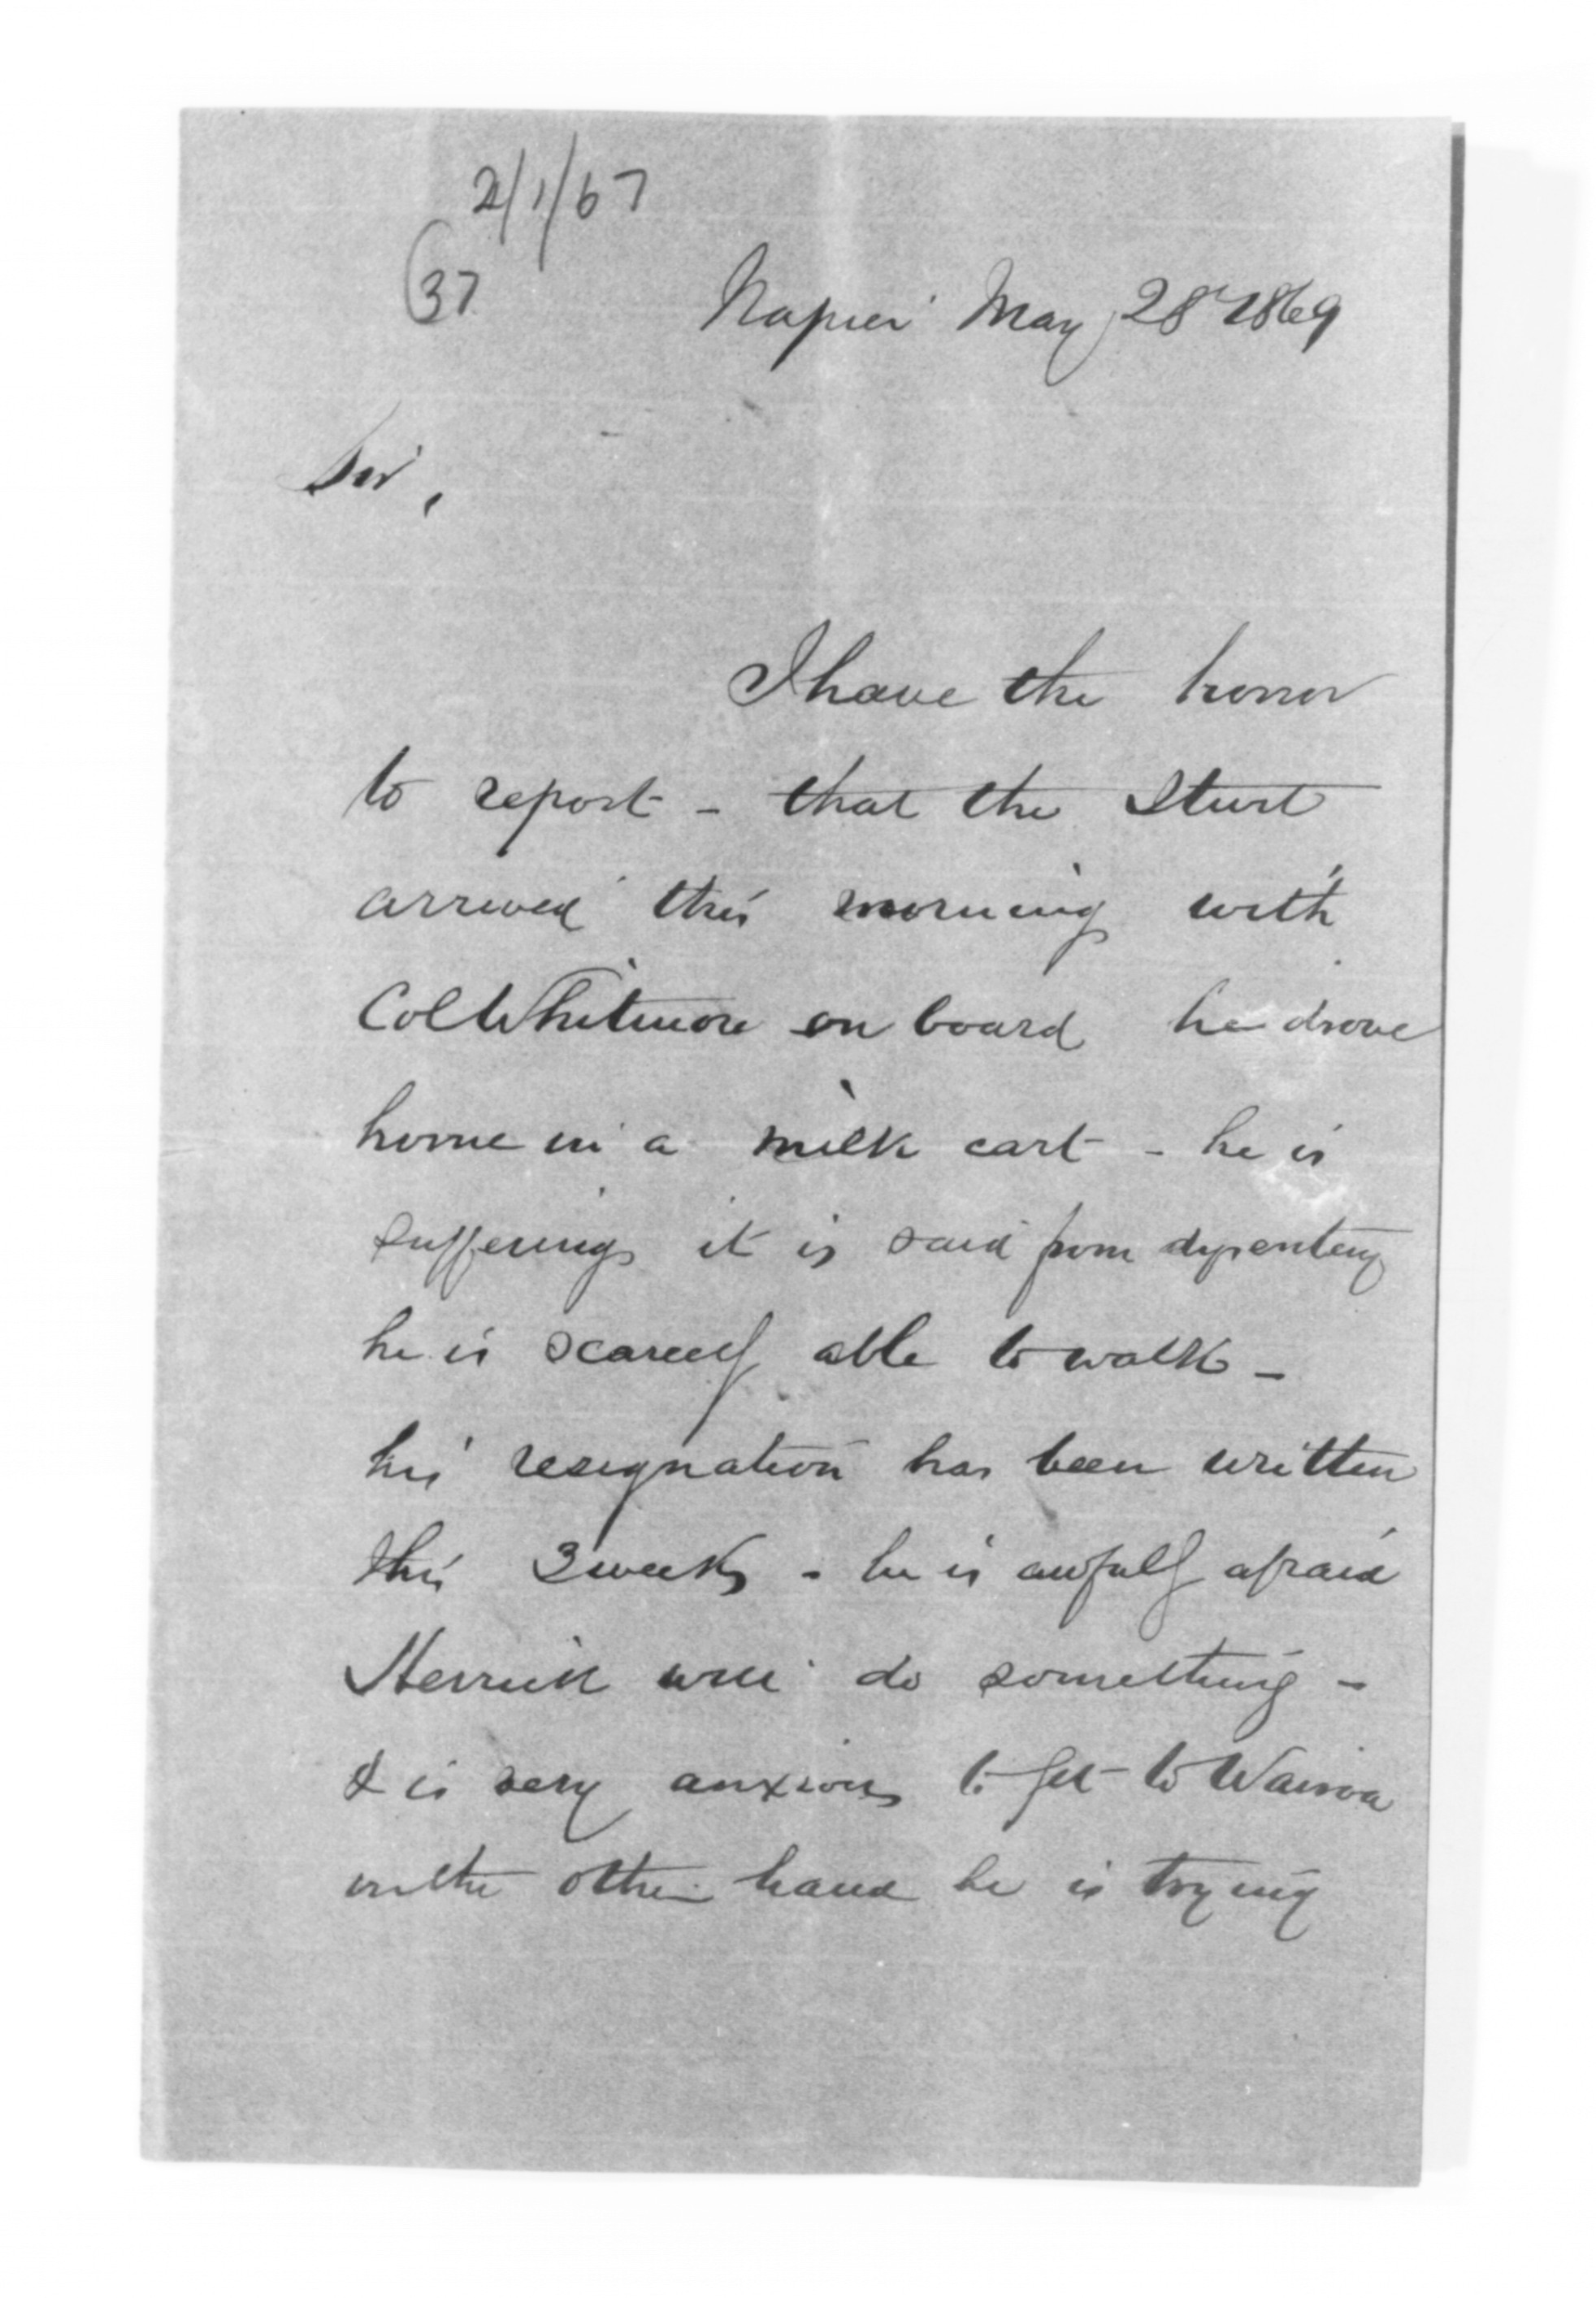 2/1/67
(37
Napier May 28th 1869
Sir,
I have the honor
to report - that the Sturt
arrived this morning with
Col Whitmore on board he drove
home in a milk cart - he is
suffering it is said from dysentery
he is scarcely able to walk -
his resignation has been written
this 3 weeks - he is awfully afraid
Herrick will do something -
& is very anxious to get to Wairoa
on the other hand he is trying